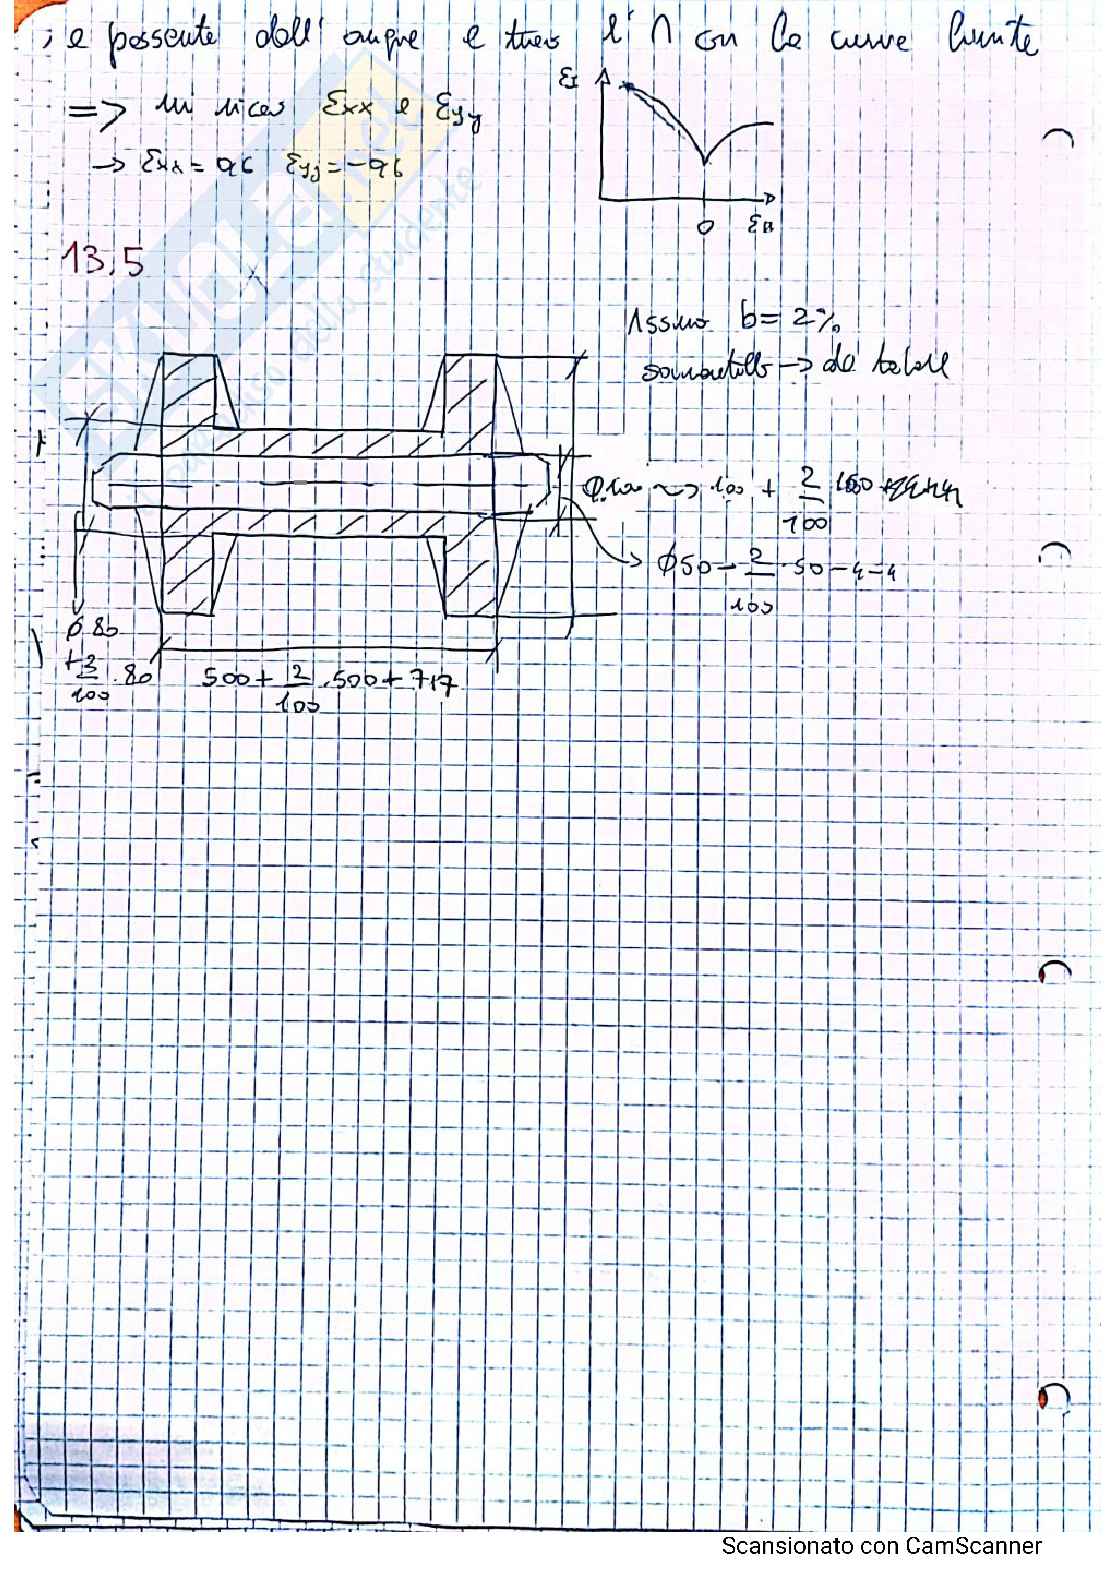 ; e passante dall' origine e trovo l' ∩ con la curva limite
=> mi ricavo Ɛxx e Ɛyy
→ Ɛxx = 0,6 Ɛyy = -0,6
ƐI
0 ƐII
13.5
Assumo b = 2%
sovrametallo → da tabelle
Φ100 ~> 100 + 2/100 100
→ Φ50 - 2/100 · 50 - 4 - 4
Φ 80
+ 2/100 · 80
500 + 2/100 · 500 + 7+7
Scansionato con CamScanner